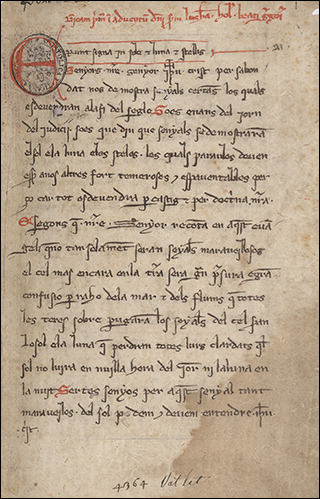 Erunt signa in sole et luna et stellis
Senyors nre senyor crist per sa bon
dat nos demostra senyals certans los quals
esdevendran ala fi del segle Soes enans del jorn
del judici soes que diu que senyals se demostrara
el sol e la luna e los steles los quals paraules deven
esser a nos altres fort temeroses y espaventables per
ço car tot esdevendra per castig et per doctrina nra
segons que nre Senyor recomta en aquest evan
geli que tan solament seran senyals maravelosos
el cel mas encara en la terra sera gran presura e gran
confusio per raho de la mar et dels flums que totes
les terres sobre pugara los senyals del cel san
lo sol e la luna que perdran totes lurs clardats quel
sol no luira en nuilla hora del jorn ni la luna en
la nuit Sertes senyors per aquest senyal tant
maravelos del sol podem y devem entendre
crist
4364 Vat lat